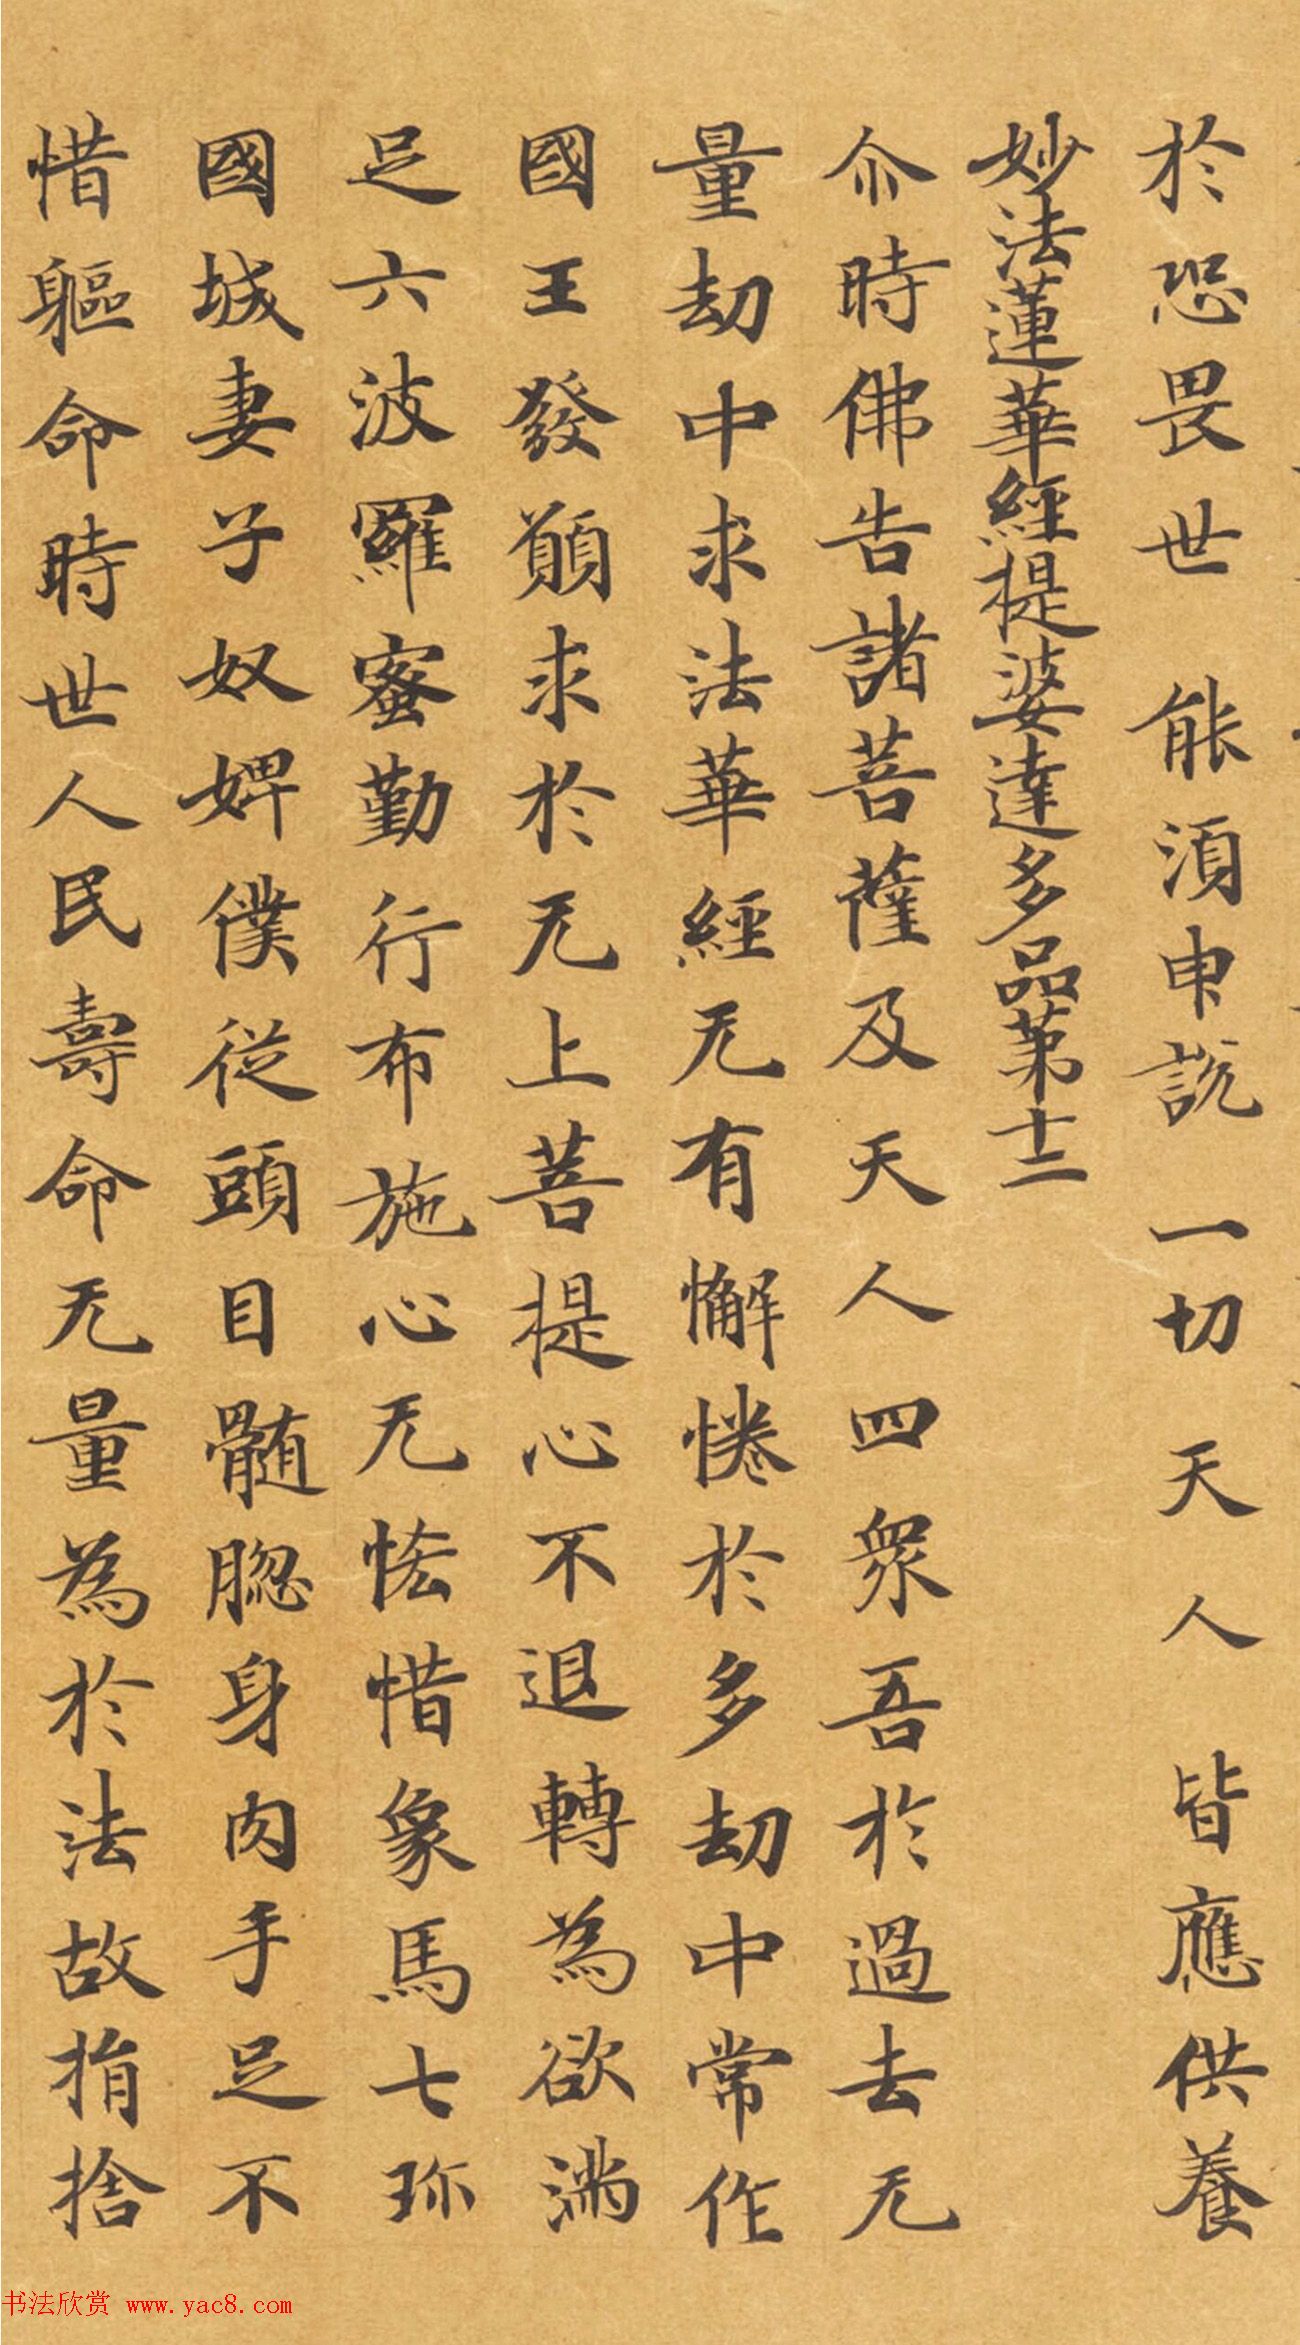 於恐畏世 能湏申說 一切天人 皆應供養
妙法蓮華經提婆達多品第十二
尒時佛告諸菩薩及天人四衆吾於過去无
量劫中求法華經无有懈惓於多劫中常作
國王發願求於无上菩提心不退轉為欲滿
足六波羅蜜勤行布施心无恡惜象馬七珎
國城妻子奴婢僕從頭目髓𦛁身肉手足不
惜軀命時世人民壽命无量為於法故捐捨
书法欣赏 www.yac8.com